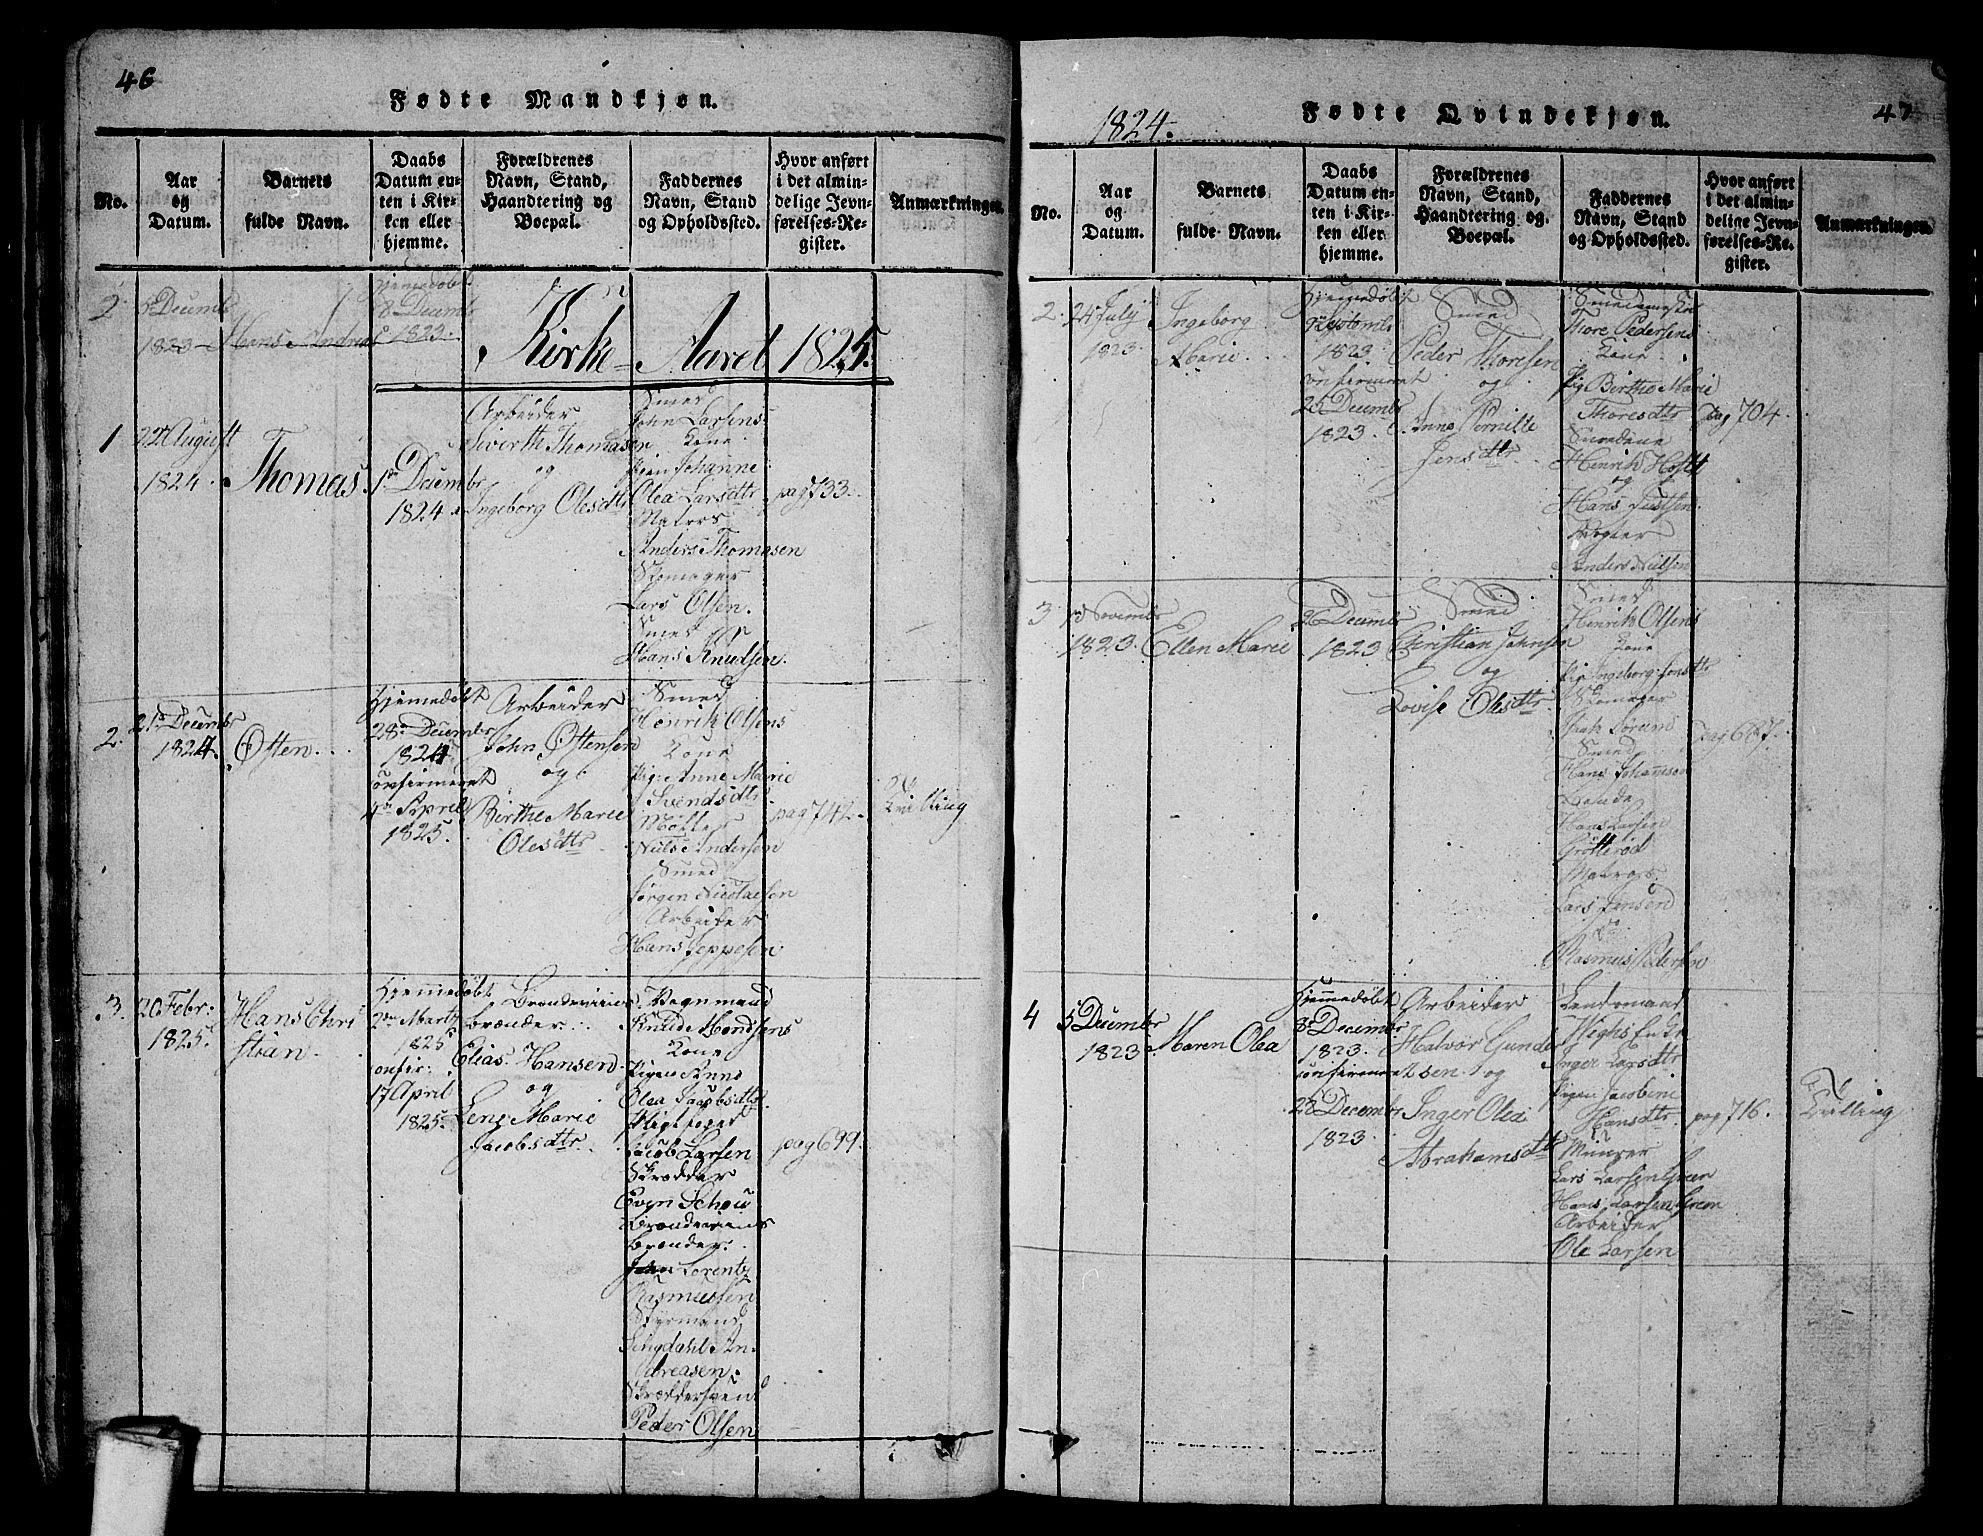 46
Fødte Mandkjøn.
No.
Aar
og
Datum.
Barnets
fulde Navn.
Daabs
Datum en-
ten i Kir-
ken eller
hjemme.
Forældrenes
Navn, Stand,
Haandtering og
Boepæl.
Faddernes
Navn, Stand
og Opholdssted.
Hvor anført
i det almin-
delige Jevn-
førelses-Re-
gister.
Anmærkninger.
2
5 Decembr
1823
Hans Andreas
Hjemedøbt
8 Decembr
1823.
Kirke-Aaret 1825.
1
22 August
1824.
Thomas
1ste Decembr
1824.
Arbeider
Sivert Thomasen
og
Ingeborg Olesdtr
Smed
John Larsens
Kone
Pigen Johanne
Olea Larsdtr
Matros
Anders Thomasen
Skomager
Lars Olsen.
Smed
Hans Knudsen.
pag 733.
2.
21de Decembr
1824.
Østen.
Hjemedøbt
28de Decembr
1824
confirmeret
4de April
1825.
Arbeider
John Østensen
og
Birthe Marie
Olesdtr
Smed
Henrik Olsens
Kone
Pig: Anne Marie
Svendsdtr
Møller
Niels Andersen
Smed
Jørgen Nicolaisen
Arbeider
Hans Jeppesen
pag 742.
Tvilling
3.
20 Febr:
1825.
Hans Chri
stian.
Hjemmedøbt
2den Martz
1825
confir:
17 April
1825.
Brændeviins
brænder
Elias Hansen
og
Lene Marie
Jacobsdtr.
Vognmand
Knud Mondsens
Kone
Pigen Anne
Olea Jacobsdtr
Pligtfoged
Jacob Larsen
Skrædder
Even Schou
Brændeviins
brænder.
Lorentz
Rasmussen
Styrmand
An-
dreasen.
Skræddersvend
Peder Olsen
pag 699.
1824.
Fødte Qvindekjøn.
47
No.
Aar
og
Datum.
Barnets
fulde Navn.
Daabs
Datum en-
ten i Kir-
ken eller
hjemme.
Forældrenes
Navn, Stand,
Haandtering og.
Boepæl.
Faddernes
Navn, Stand
og Opholdssted.
Hvor anført
i det almin-
delige Jevn-
førelses-Re-
gister.
Anmærkninger.
2.
24 July
1823.
Ingeborg
Marie.
Hjemedøbt
Septembr
1823
confirmeret
26 Decembr
1823.
Smed
Peder Thoresen
og
Anne Pernille
Jensdtr
Thore Pedersens
Kone
Pig Birthe Marie
Thoresdtr
Smedene
Henrik Holst
og
Hans Justsen
Vægter
Anders Nielsen
Pag 704.
3
13 Novembr
1823.
Ellen Marie
26 Decembr
1823
Smed
Christian Johnsen
og
Lovise Olesdtr
Smed
Henrik Olsens
Kone
Pig Ingeborg Jensdtr
Skomager
Smed
Hans Johannsen
Bonde
Hans Larsen
Grøtterød
Matros
Lars Jensen
Rasmus Pedersen
Pag 687.
4
5 Decembr
1823
Maren Olea
Hjemmedøbt
8 Decembr
1823.
confirmeret
28 Decembr
1823.
Arbeider
Halvor Gunder
sen og
Inger Olea
Abrahamsdtr
Landmand
Inger Larsdtr
Pigen Jacobine
Hansdtr
Muurer
Lars Larsen Green
Hans Larsen Green
Arbeider
Ole Larsen
pag 716.
Tvilling